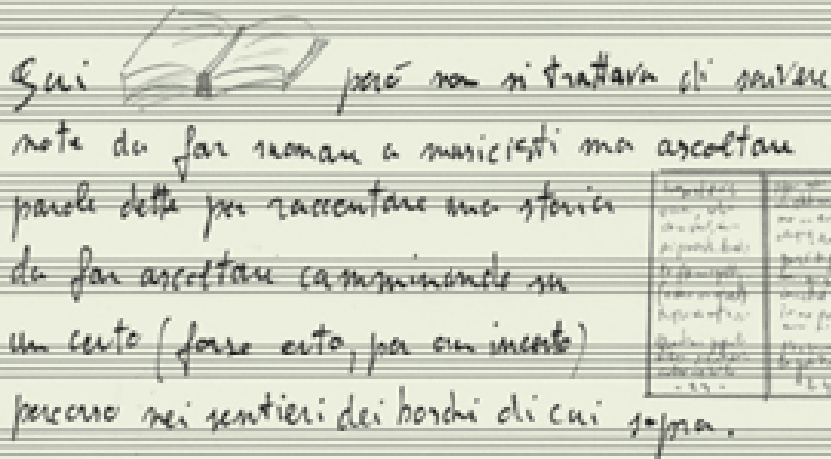 Qui però non si trattava di scrivere
note da far suonare a musicisti ma ascoltare
parole dette per raccontare una storia
da far ascoltare camminando su
un certo (forse erto, per un incerto)
percorso nei sentieri dei boschi di cui sopra.